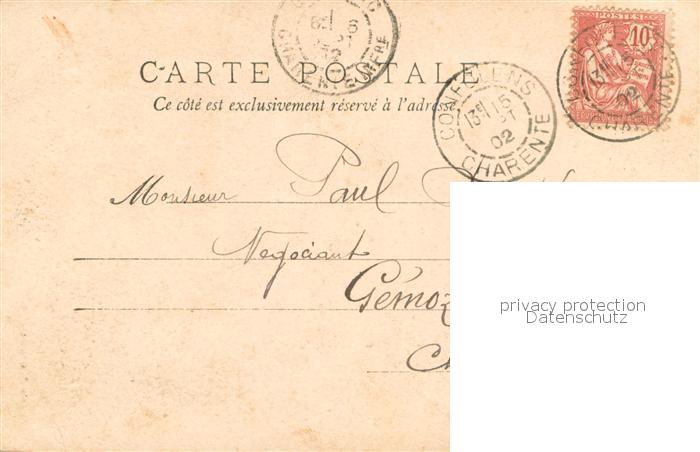 POSTES
10
CARTE POSTALE
Ce côté est exclusivement réservé à l'adresse.
CONFOLENS
13E 15
02
CHARENTE
Monsieur Paul
Negociant
Gémoz
Ch
privacy protection
Datenschutz